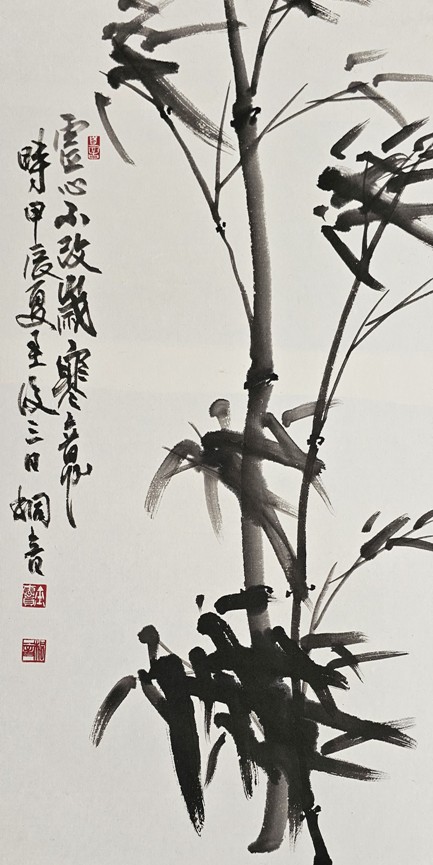 虛心不改歲寒
時甲辰夏至後三日 音